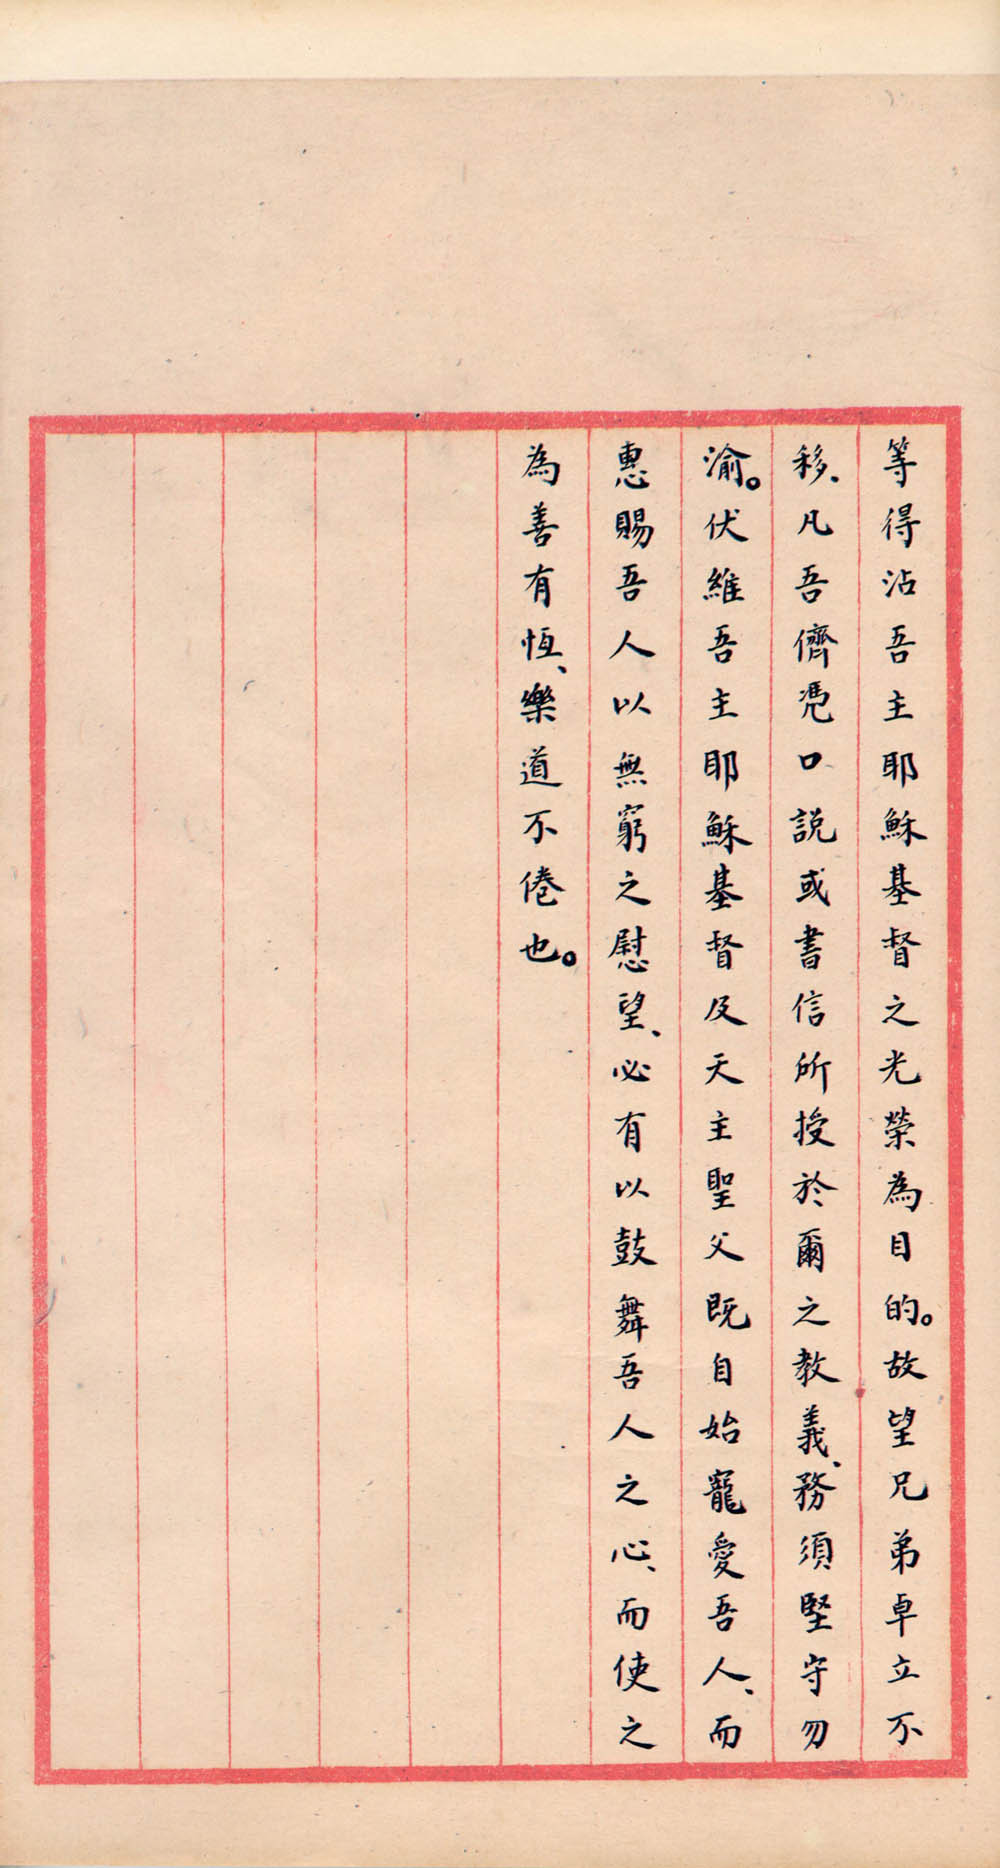 等得沾吾主耶穌基督之光榮為目的。故望兄弟卓立不
移、凡吾儕憑口說或書信所授於爾之教義、務須堅守勿
渝。伏維吾主耶穌基督及天主聖父既自始寵愛吾人、而
惠賜吾人以無窮之慰望、必有以鼓舞吾人之心、而使之
為善有恆、樂道不倦也。